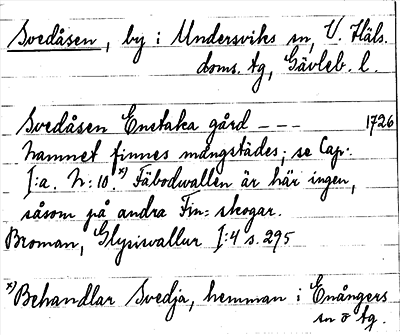 Svedåsen, by i Undersviks sn, V. Häls.
doms. tg, Gävleb. l.
Svedåsen Enstaka gård --- 1726
hamnet finnes mångstädes; se Cap:
I:a. N:10.x) Fäbodwallen är här ingen,
såsom på andra Fin=skogar.
Broman, Glysisvallur I:4 s. 295
x) Behandlar Svedja, hemman i Enångers
sn o tg.